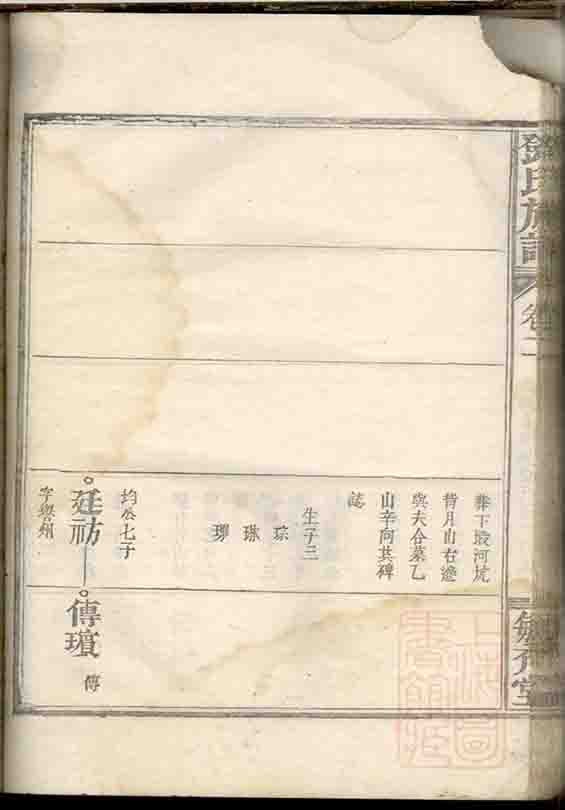 鄧氏族譜
卷二
葬下塅河坑
背月山右邊
與夫合墓乙
山辛向共碑
誌
生子三
琮
琳
琊
均公七子
廷祊
字譽州
傳璸
傳
上海圖書館藏